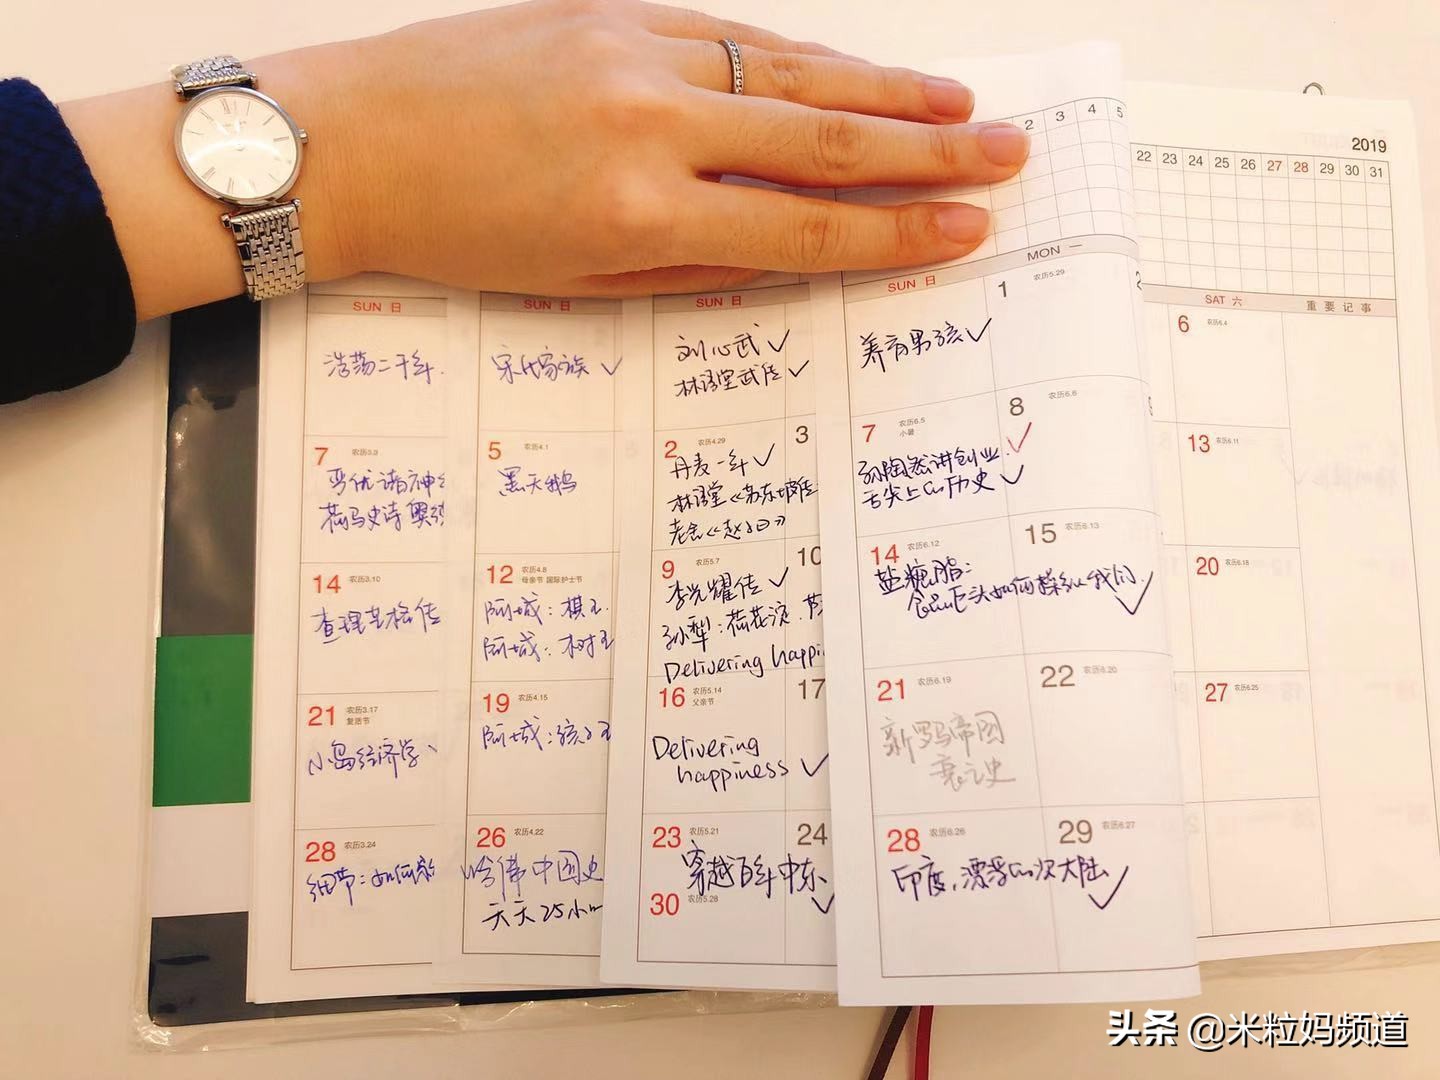 2019
2 3 4 5
22 23 24 25 26 27 28 29 30 31
SUN 日
浩荡二千年.
7 农历3.3
荷马史诗 奥
14 农历3.10
查理芒格传
21 农历3.17
复活节
小岛经济学
28 农历3.24
细节:如何
SUN 日
宋代家族 ✓
5 农历4.1
黑天鹅
12 农历4.8
母亲节 国际护士节
阿城:棋王.
阿城:树王
19 农历4.15
阿城:孩子王
26 农历4.22
哈佛中国史
天天25小
SUN 日
刘心武 ✓
林语堂武传 ✓
2 农历4.29
3
丹麦一年 ✓
林语堂《苏东坡传
老舍《赵子曰》
9 农历5.7
10
李光耀传 ✓
孙犁:荷花淀.芦
Delivering happi
16 农历5.14
父亲节
17
Delivering
happiness ✓
23 农历5.21
24
穿越百年中东
✓
30 农历5.28
SUN 日 MON 一
1 农历5.29
2
养育男孩 ✓
7 农历6.5
小暑
8 农历6.6
孙陶然讲创业. ✓
舌尖上的历史 ✓
14 农历6.12
15 农历6.13
盐糖脂:
食品巨头如何操纵我们. ✓
21 农历6.19
22 农历6.20
新罗马帝国
衰亡史
28 农历6.26
29 农历6.27
印度,漂浮的次大陆 ✓
SAT 六 重要记事
6 农历6.4
13 农历6.11
20 农历6.18
27 农历6.25
头条 @米粒妈频道